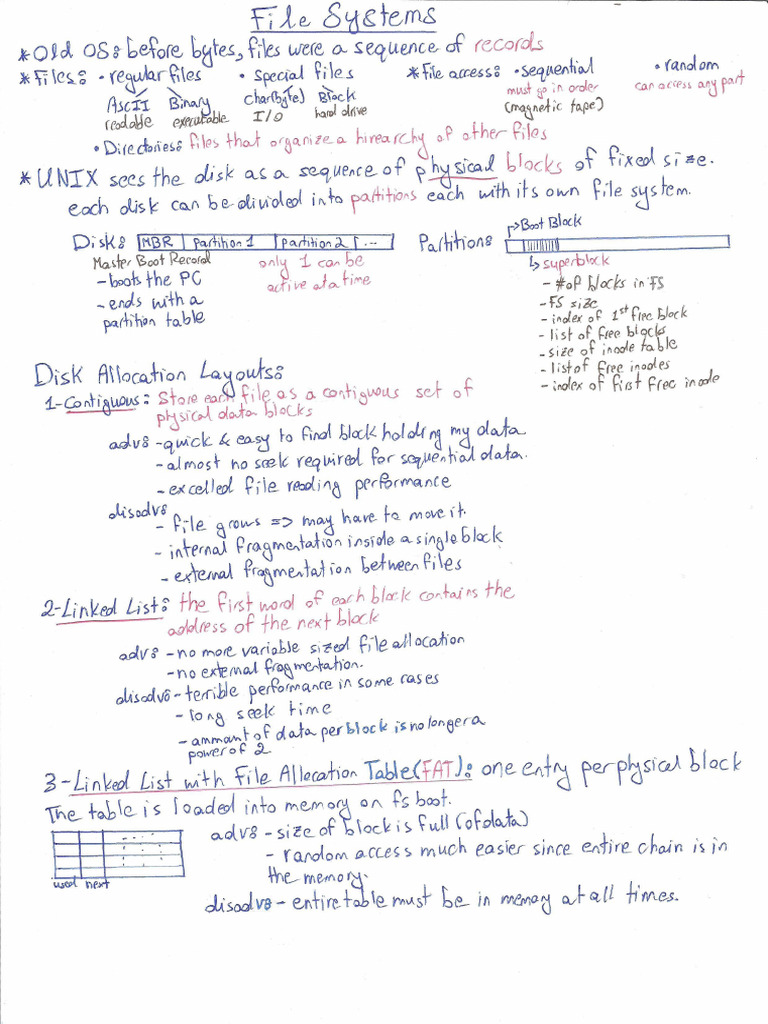 File Systems
* Old OS: before bytes, files were a sequence of records
* Files: • regular files • special files * File access: • sequential • random
AscII Binary char(byte) Block must go in order can access any part
readable executable I/O hard drive (magnetic tape)
• Directories: files that organize a hirearchy of other files
* UNIX sees the disk as a sequence of physical blocks of fixed size.
each disk can be divided into partitions each with its own file system.
Disk: MBR partition 1 partition 2 ... Partitions Boot Block
Master Boot Record only 1 can be superblock
- boots the PC active at a time - # of blocks in FS
- ends with a - FS size
partition table - index of 1st free block
- list of free blocks
- size of inode table
- list of free inodes
- index of first free inode
Disk Allocation Layouts:
1- Contiguous: Store each file as a contiguous set of
physical data blocks
adv: - quick & easy to find block holding my data
- almost no seek required for sequential data.
- excelled file reading performance
disadv:
- file grows => may have to move it.
- internal fragmentation inside a single block
- external fragmentation between files
2- Linked List: the first word of each block contains the
address of the next block
adv: - no more variable sized file allocation
- no external fragmentation.
disadv: - terrible performance in some cases
- long seek time
- ammount of data per block is no longer a
power of 2
3- Linked List with File Allocation Table (FAT): one entry per physical block
The table is loaded into memory on fs boot.
adv: - size of block is full (of data)
- random access much easier since entire chain is in
the memory.
used next
disadv: - entire table must be in memory at all times.